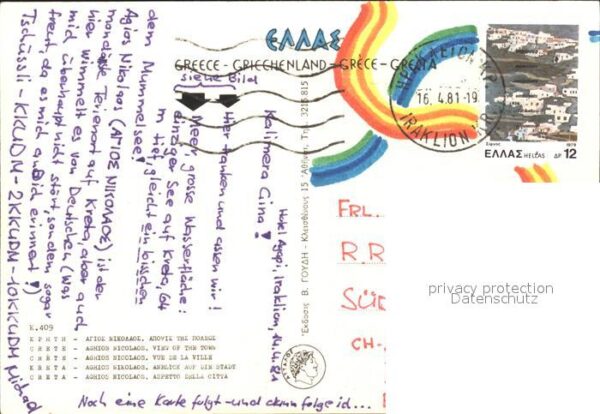 ΕΛΛΑΣ
GREECE - GRIECHENLAND - GRÈCE - GRECIA
siehe Bild
Hotel Agapi, Iraklion, 14.4.81
Kalimera Gina!
Hier tranken und assen wir!
Meer, grosse Wasserfläche:
einziger See auf Kreta, 64
m tief, gleicht ein bisschen
dem Mummelsee!
Agios Nikolaos (ΑΓΙΟΣ ΝΙΚΟΛΑΟΣ) ist der
mondänste Ferienort auf Kreta, aber auch
hier wimmelt es von Deutschen (was
mich überhaupt nicht stört, sondern sogar
freut, da es mich an Dich erinnert!)
Tschüssli - KKUDM - 2KKUDM - 10KKUDM
Noch eine Karte folgt - und dann folge ich...
K.409
ΚΡΗΤΗ - ΑΓΙΟΣ ΝΙΚΟΛΑΟΣ,
CRETE - AGHIOS NICOLAOS, VIEW OF THE TOWN
CRETE - AGHIOS NICOLAOS, VUE DE LA VILLE
KRETA - AGHIOS NICOLAOS, ANBLICK AUF DIE STADT
CRETA - AGHIOS NICOLAOS, ASPETTO DELLA CITTA
Ἔκδοσις Β. ΓΟΥΔΗ - Κλεισθένους 15 Ἀθῆναι, Τηλ. 3218.815
16.4.81-19
IRAKLION
1979
ΕΛΛΑΣ HELLAS ΔΡ 12
FRL.
R R
SÜD
CH-
privacy protection
Datenschutz